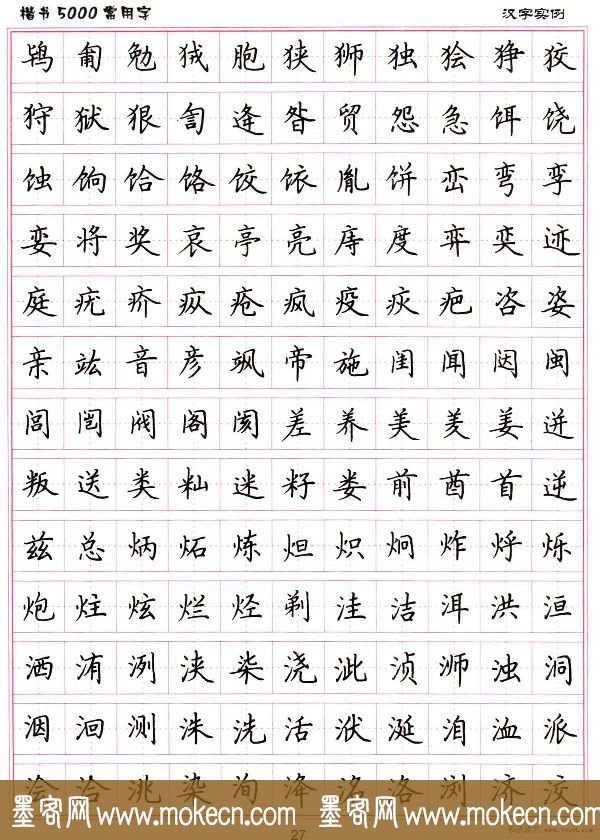 楷书5000常用字
汉字实例
鸨匍勉狨胞狭狮独狯狰狡
狩狱狠訇逄昝贸怨急饵饶
蚀饷饸饹饺饻胤饼峦弯孪
娈将奖哀亭亮庤度弈奕迹
庭疣疥疭疮疯疫疢疤咨姿
亲竑音彦飒帝施闺闻闼闽
闾闿阀阁阂差养美羑姜迸
叛送类籼迷籽娄前酋首逆
兹总炳炻炼炟炽炯炸烀烁
炮炷炫烂烃剃洼洁洱洪洹
洒洧洌浃柒浇泚浈浉浊洞
洇洄测洙洗活洑涎洎洫派
浍洽洮染洵洚洺洛浏济洨
墨客网 www.mokecn.com 墨客网 www.mokecn.com
27